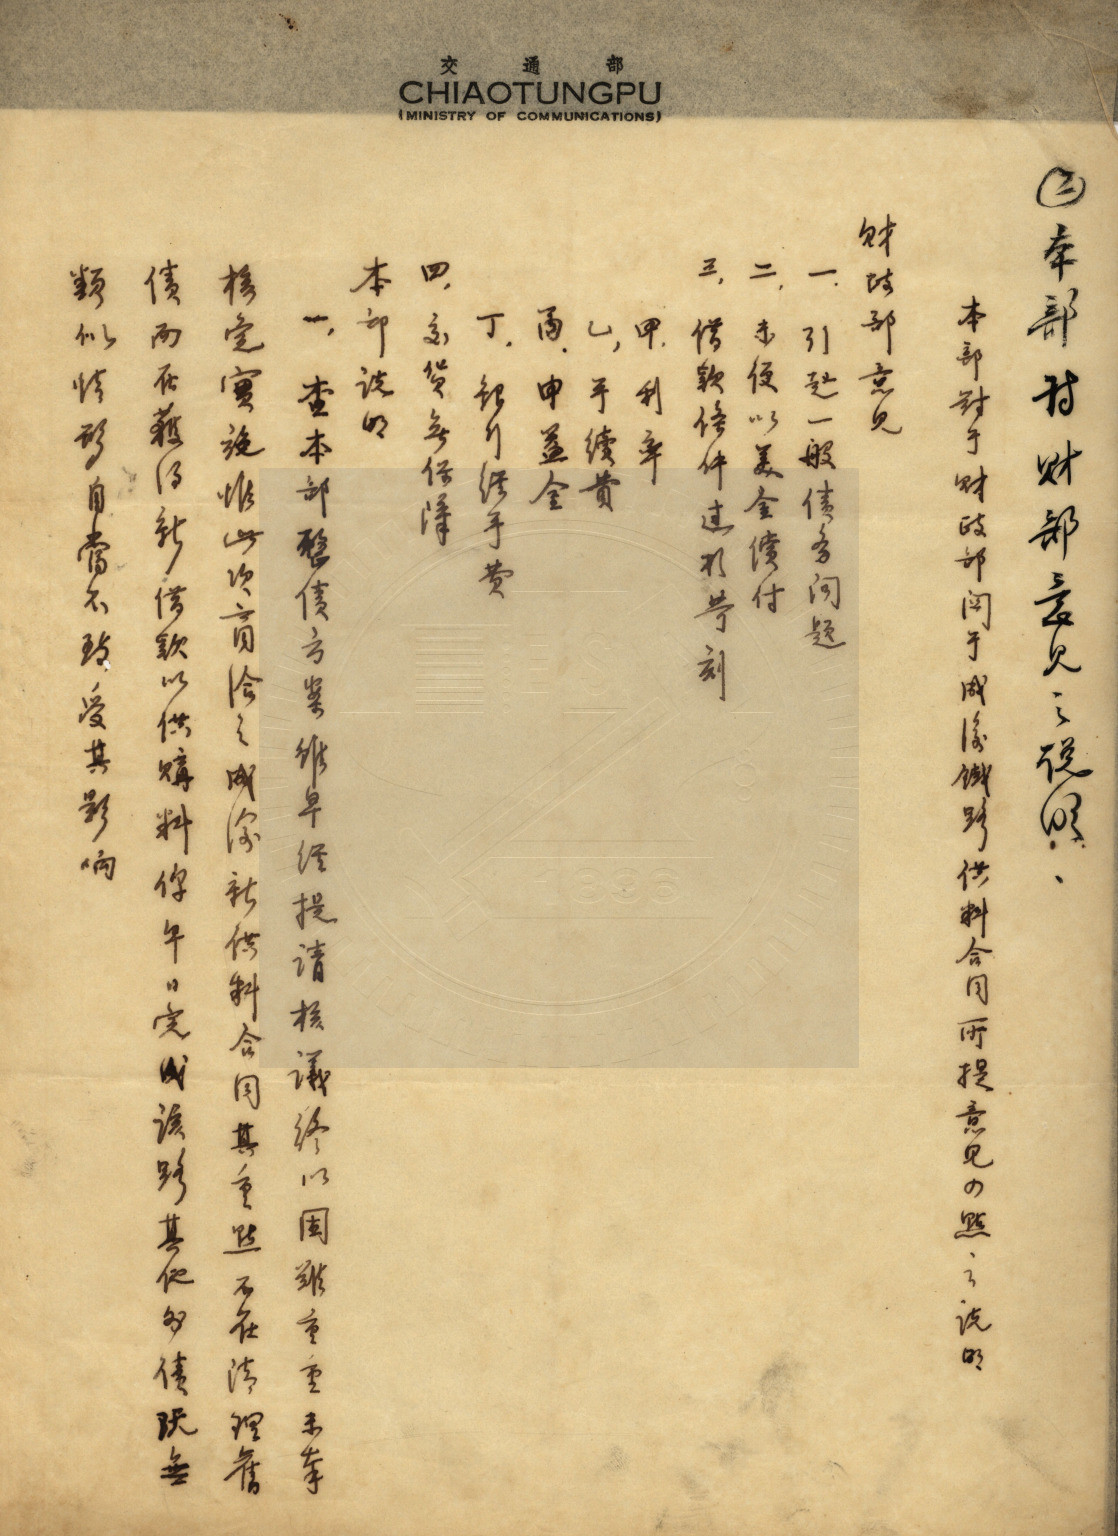 交通部
CHIAOTUNGPU
(MINISTRY OF COMMUNICATIONS)
㊁本部对财部意见之说明
本部对于财政部関于成渝鐵路供料合同所提意见四點之说明
财政部意见
一、引起一般债务问题
二、未便以美金償付
三、借款條件過於苛刻
甲、利率
乙、手續費
丙、申益金
丁、銀行經手費
四、交货無保障
本部说明
一、查本部整债方案雖早經提請核議終以困難重重未奉
核定實施惟此次商洽之成渝新供料合同其重點不在清理舊
债而在獲得新借款以供購料俾早日完成该路其他外债既無
類似情形自當不致受其影响
1896